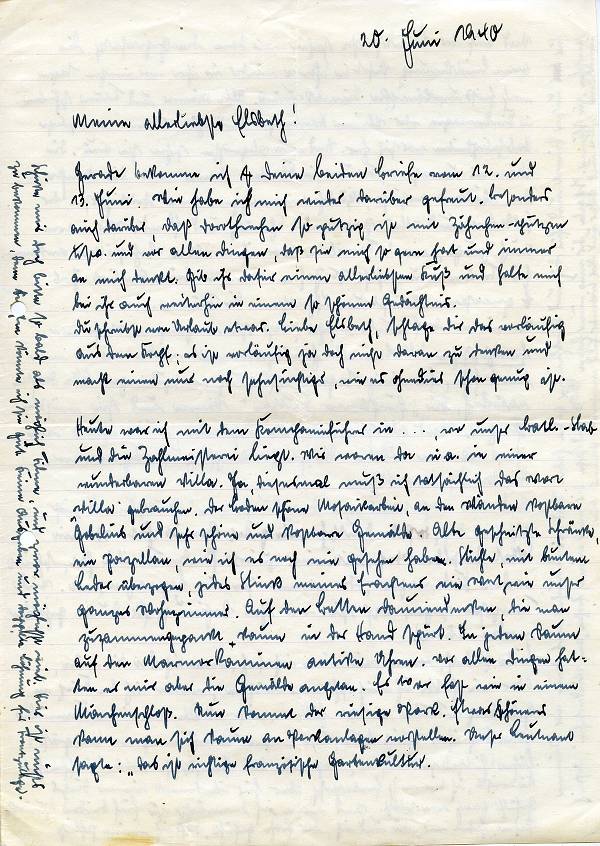 20. Juni 1940
Meine allerliebste Elsbeth!
Gerade bekomme ich Deine beiden Briefe vom 12. und
13. Juni. Wie habe ich mich wieder darüber gefreut. Besonders
auch darüber, daß Dorthechen so putzig ist mit Zähnchen-putzen
usw. und vor allen Dingen, daß sie mich so gern hat und immer
an mich denkt. Gib ihr dafür einen allerliebsten Kuß und halte mich
bei ihr auch weiterhin in einem so schönen Gedächtnis.
Du schreibst von Urlaub etwas. Liebe Elsbeth, schlage Dir das vorläufig
aus dem Kopf; es ist vorläufig ja doch nicht daran zu denken und
macht einen nur noch sehnsüchtiger, wie es ohnedies schon genug ist.
Heute war ich mit dem Kompanieführer in ..., wo unser Batl.-Stab
und die Zahlmeisterei liegt. Wir waren da u. a. in einer
wunderbaren Villa. Ja, diesesmal muß ich tatsächlich das Wort
"Villa" gebrauchen. Der Boden schöne Mosaikarbeit, an den Wänden kostbare
Gobelins und sehr schöne und kostbare Gemälde. Alte geschnitzte Schränke,
ein Porzellan, wie ich es noch nie gesehen habe. Stühle, mit buntem
Leder überzogen, jedes Stück meines Erachtens ein Wert wie unser
ganzes Wohnzimmer. Auf den Betten Daunendecken, die man
zusammengepackt kaum in der Hand spürt. In jedem Raum
auf den Marmorkaminen antike Uhren. Vor allen Dingen hat-
ten es mir aber die Gemälde angetan. Es war fast wie in einem
Märchenschloß. Nun kommt der riesige Park. Etwas Schöneres
kann man sich kaum an Parkanlagen vorstellen. Unser Leutnant
sagte: "das ist richtige französische Gartenkultur.
Schicke mir doch bitte so bald als möglich Filme, und zwar möglichst viele. Hier ist nichts
zu bekommen, denn